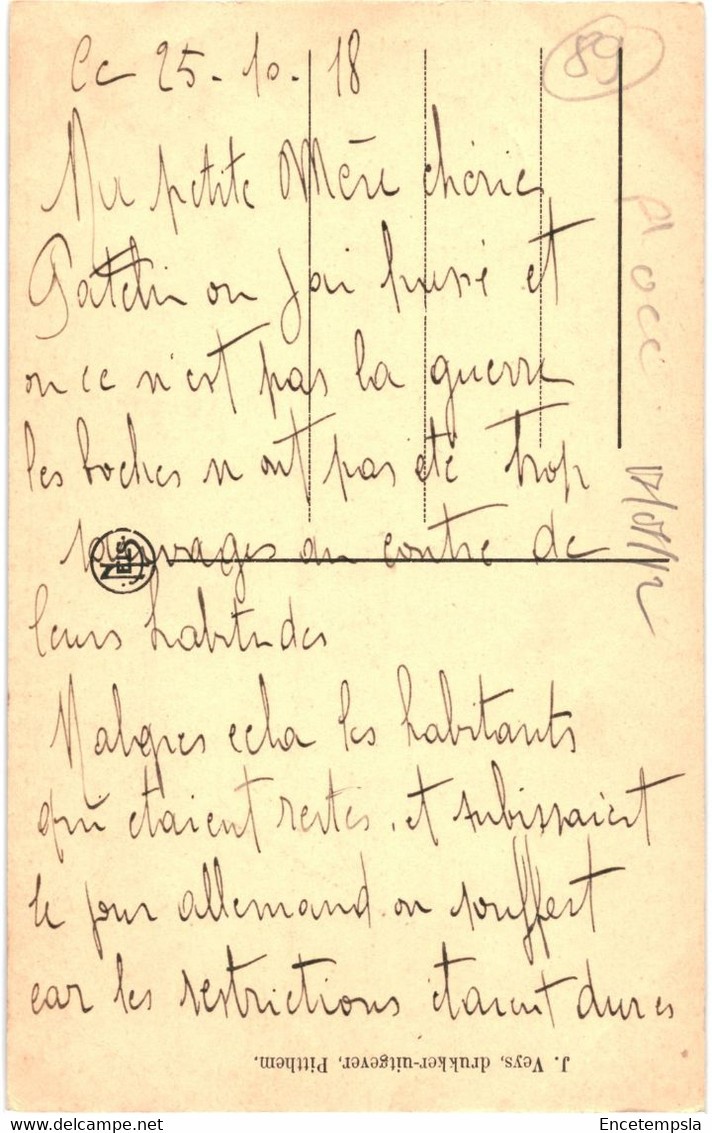 Ce 25-10-18
89
Ma petite Mère chérie
Patelin ou j'ai passé et
ou ce n'est pas la guerre
les boches n ont pas été trop
sauvages au contre de
NELS
leurs habitudes
Malgres cela les habitants
qui étaient restés. et subissaient
le jour allemand on souffert
car les restrictions étaient dures
J. Veys, drukker-uitgever, Pitthem.
Encetempsla